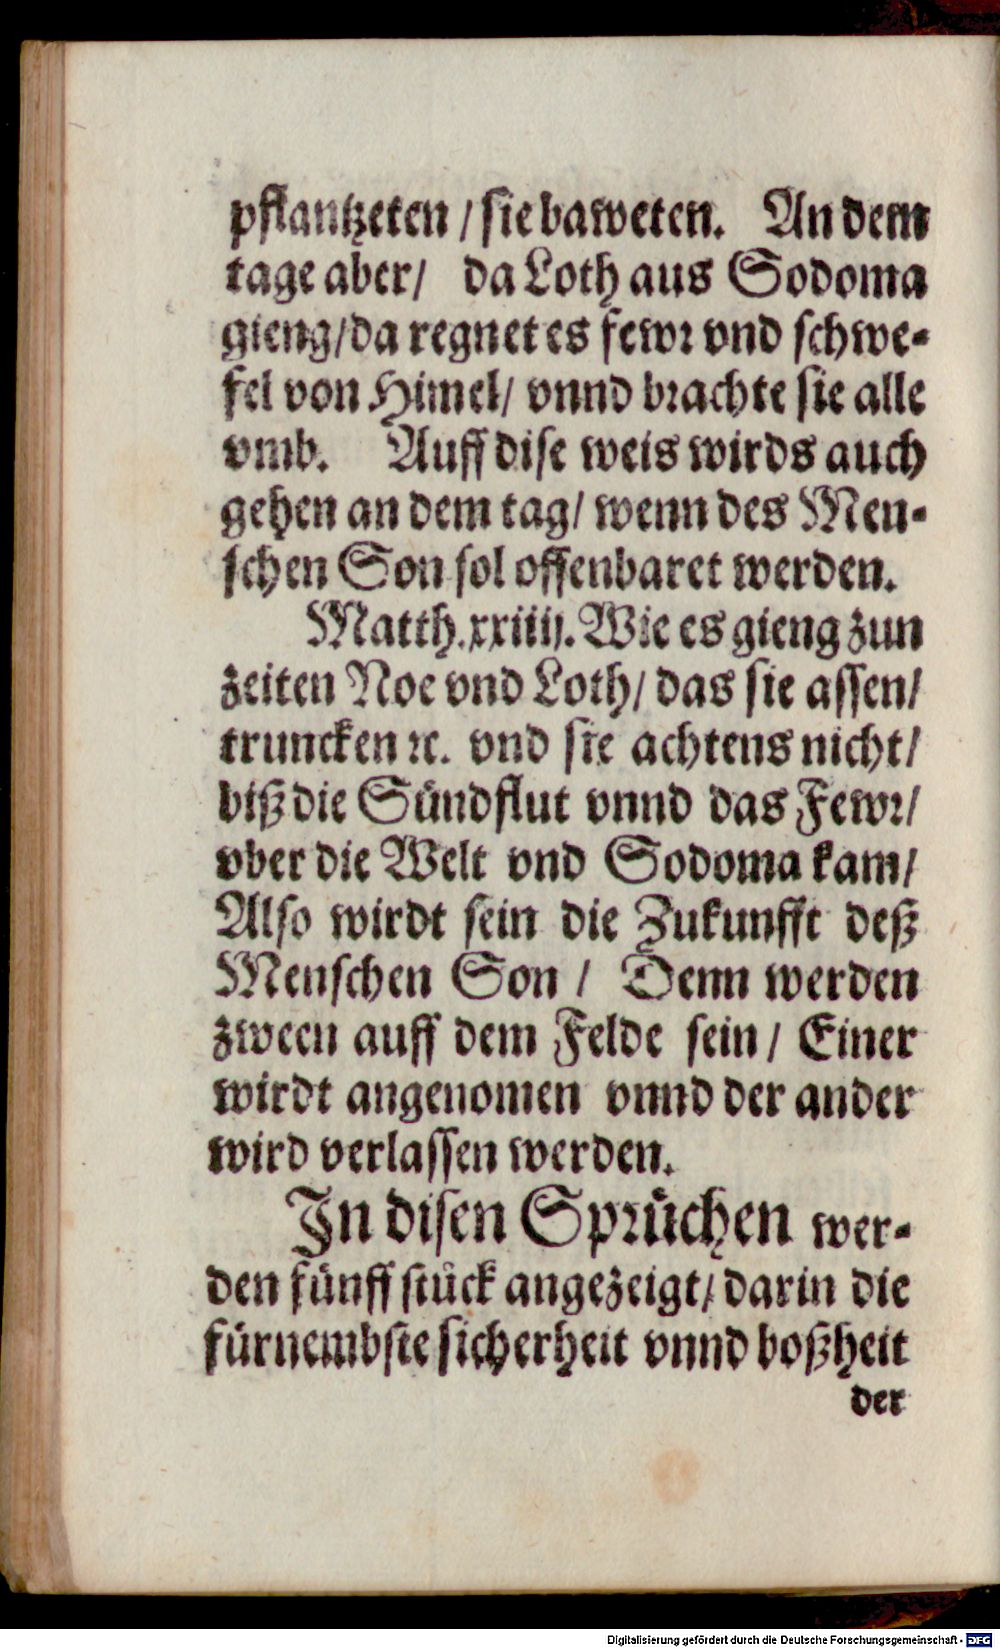 pflantzeten / sie baweten. An dem
tage aber / da Loth aus Sodoma
gieng / da regnet es fewr vnd schwe-
fel von Himel / vnnd brachte sie alle
vmb. Auff dise weis wirds auch
gehen an dem tag / wenn des Men-
schen Son sol offenbaret werden.
Matth. xxiiij. Wie es gieng zun
zeiten Noe vnd Loth / das sie assen /
truncken ꝛc. vnd sie achtens nicht /
biß die Sündflut vnnd das Fewr /
vber die Welt vnd Sodoma kam /
Also wirdt sein die Zukunfft deß
Menschen Son / Denn werden
zween auff dem Felde sein / Einer
wirdt angenomen vnnd der ander
wird verlassen werden.
In disen Sprüchen wer-
den fünff stück angezeigt / darin die
fürnembste sicherheit vnnd boßheit
der
Digitalisierung gefördert durch die Deutsche Forschungsgemeinschaft - DFG